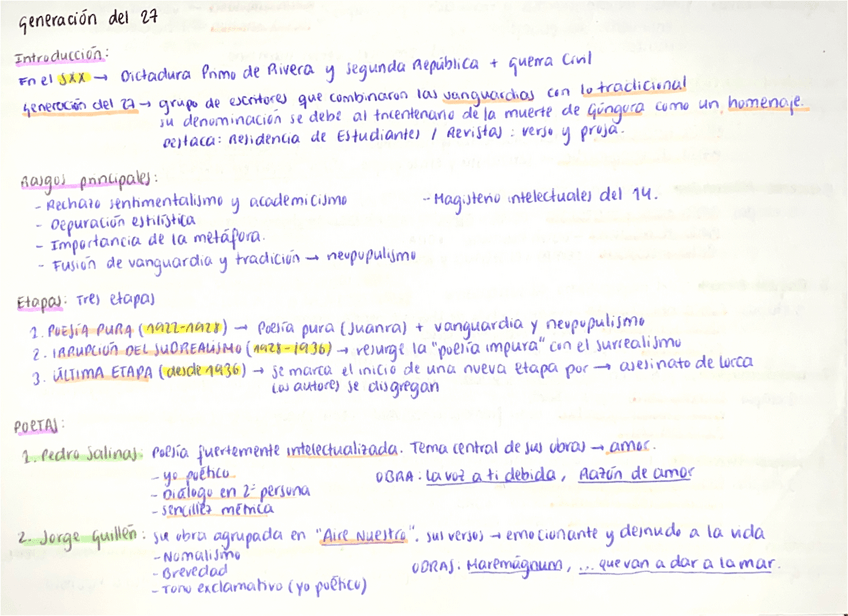 Generación del 27
Introducción:
En el SXX → Dictadura Primo de Rivera y Segunda República + Guerra Civil
Generación del 27 → grupo de escritores que combinaron las vanguardias con lo tradicional
su denominación se debe al tricentenario de la muerte de Góngora como un homenaje.
Destaca: Residencia de Estudiantes / Revistas: verso y prosa.
Rasgos principales:
- Rechazo sentimentalismo y academicismo - Magisterio intelectuales del 14.
- Depuración estilística
- Importancia de la metáfora.
- Fusión de vanguardia y tradición → neopopulismo
Etapas: Tres etapas
1. POESÍA PURA (1922-1928) → Poesía pura (Juanra) + vanguardia y neopopulismo
2. IRRUPCIÓN DEL SUDREALISMO (1928-1936) → resurge la "poesía impura" con el surrealismo
3. ÚLTIMA ETAPA (desde 1936) → se marca el inicio de una nueva etapa por → asesinato de Lorca
Los autores se disgregan
POETAS:
1. Pedro Salinas: Poesía fuertemente intelectualizada. Tema central de sus obras → amor.
- yo poético OBRA: La voz a ti debida, Razón de amor
- Diálogo en 2ª persona
- sencillez métrica
2. Jorge Guillén: su obra agrupada en "Aire Nuestro". sus versos → emocionante y desnudo a la vida
- Nomalismo
- Brevedad OBRAS: Maremágnum, ... que van a dar a la mar.
- Tono exclamativo (yo poético)